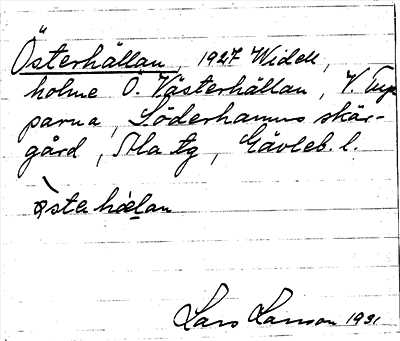 Österhällan, 1927 Widell,
holme Ö. Västerhällan, V. Tup
parna, Söderhamns skär-
gård, Ala tg, Gävleb. l.
Lars Larsson 1931